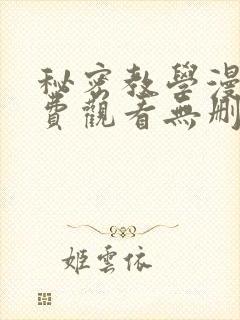 秘密教學漫
費觀看無刪
姬雲依